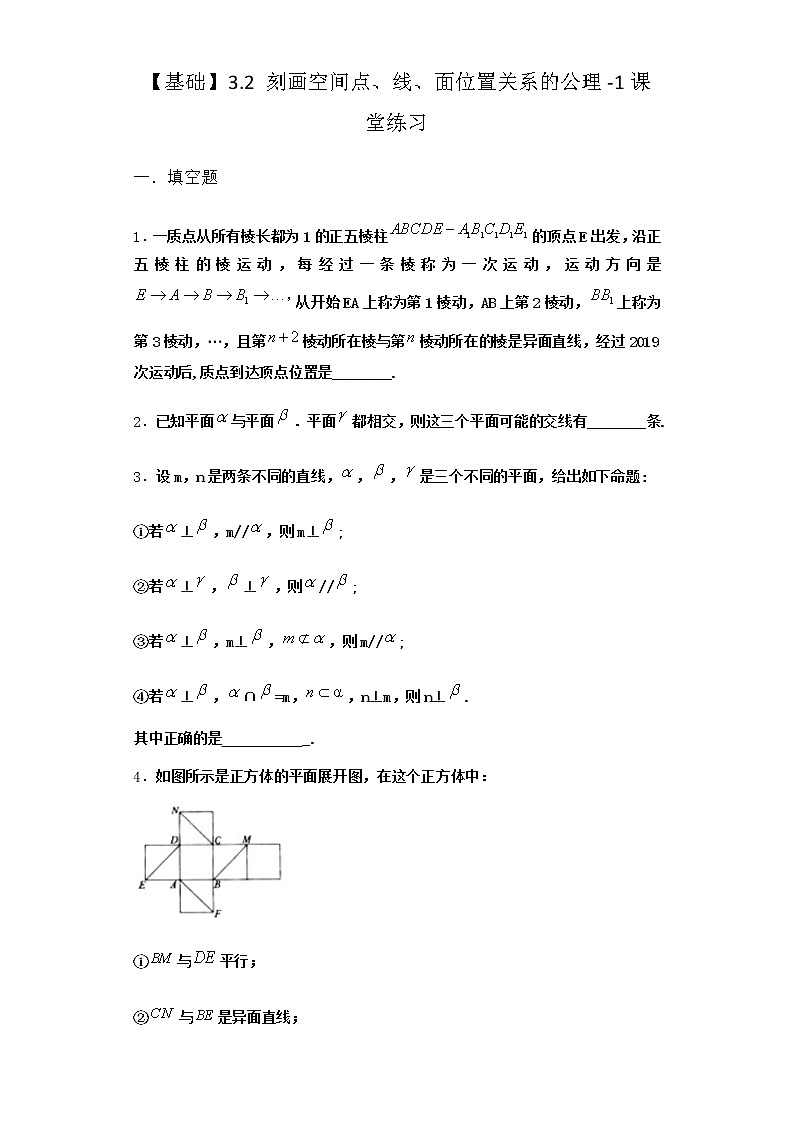 【基础】3.2 刻画空间点、线、面位置关系的公理-1课
堂练习
一．填空题
1．一质点从所有棱长都为1的正五棱柱ABCDE－A₁B₁C₁D₁E₁的顶点E出发,沿正
五棱柱的棱运动,每经过一条棱称为一次运动,运动方向是
E→A→B→B₁→…,从开始EA上称为第1棱动,AB上第2棱动,BB₁上称为
第3棱动,…,且第n+2棱动所在棱与第n棱动所在的棱是异面直线,经过2019
次运动后,质点到达顶点位置是________.
2．已知平面α与平面β．平面γ都相交,则这三个平面可能的交线有________条.
3．设m,n是两条不同的直线,α,β,γ是三个不同的平面,给出如下命题:
①若α⊥β,m//α,则m⊥β;
②若α⊥γ,β⊥γ,则α//β;
③若α⊥β,m⊥β,m⊄α,则m//α;
④若α⊥β,α∩β=m,n⊂α,n⊥m,则n⊥β.
其中正确的是___________.
4．如图所示是正方体的平面展开图,在这个正方体中:
N
D C M
E A B
F
①BM与DE平行;
②CN与BE是异面直线;